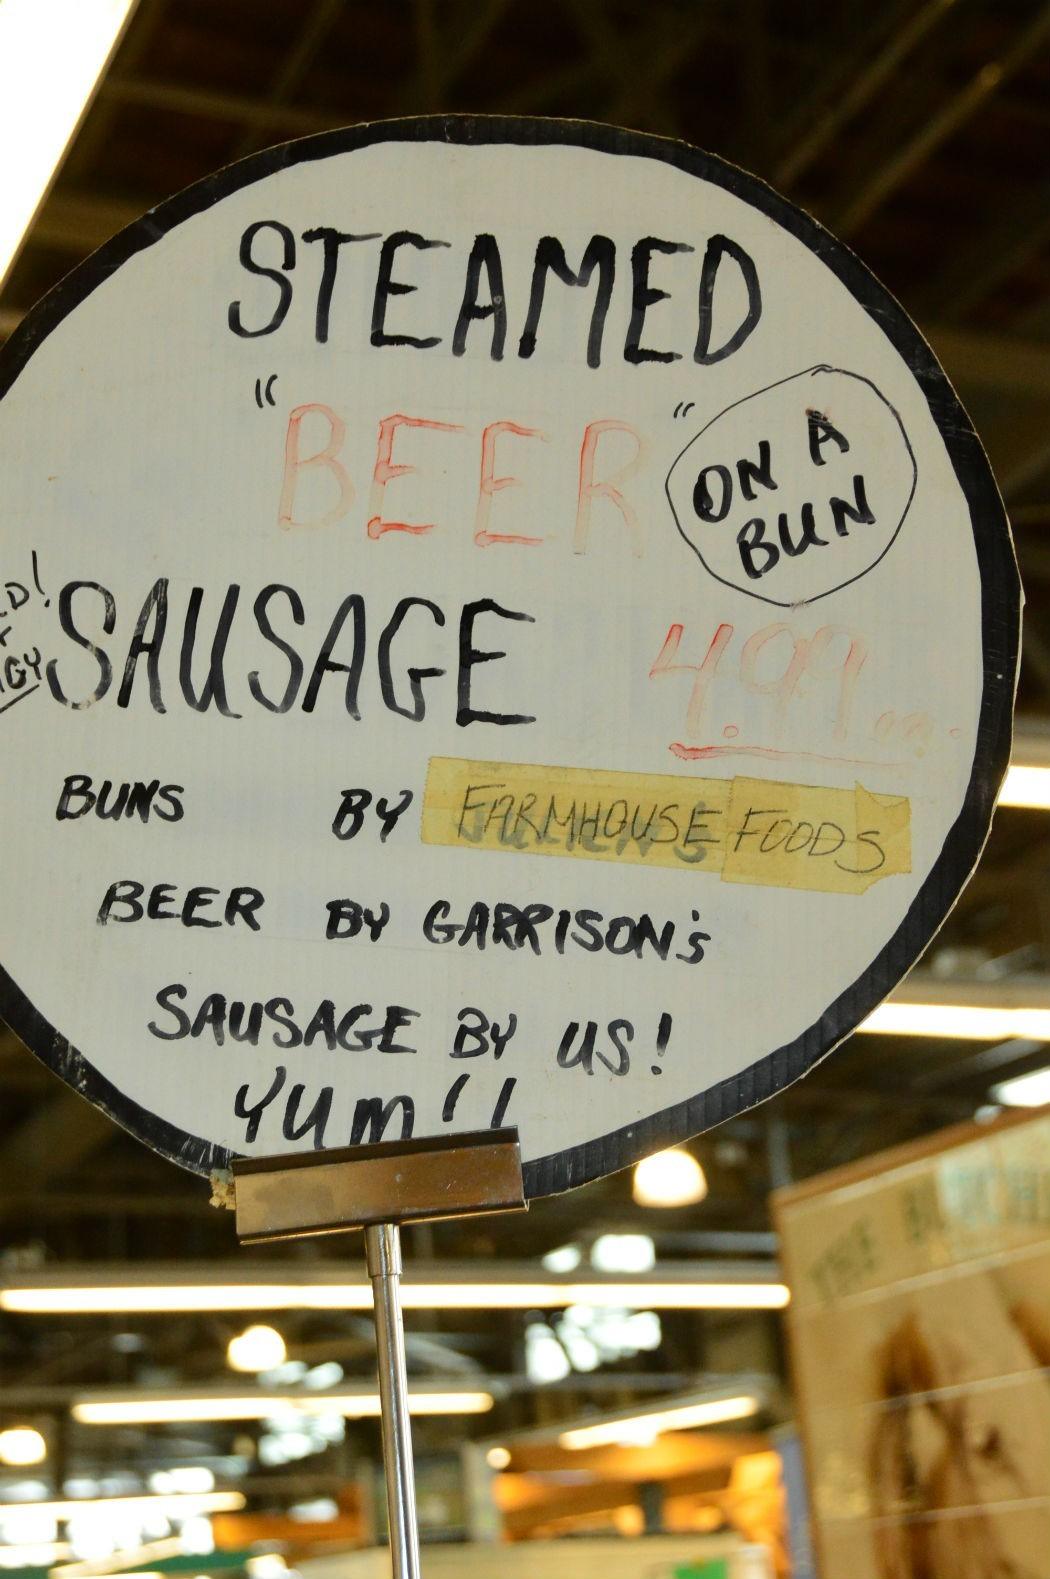 STEAMED
"BEER"
ON A
BUN
SAUSAGE 4.99
BUNS BY FARMHOUSE FOODS
BEER BY GARRISON'S
SAUSAGE BY US!
YUM!!